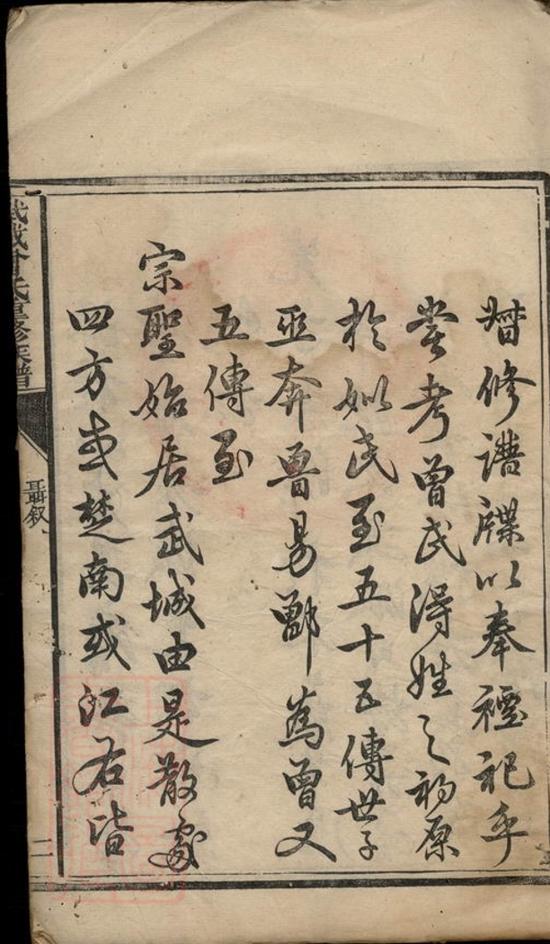 修譜牒以奉禋祀乎
嘗考曾氏得姓之初原
於姒氏至五十五傳世子
巫奔魯易鄫為曾又
五傳至
宗聖始居武城由是散處
四方或楚南或江右皆
武城曾氏重修族譜
聶叙
二